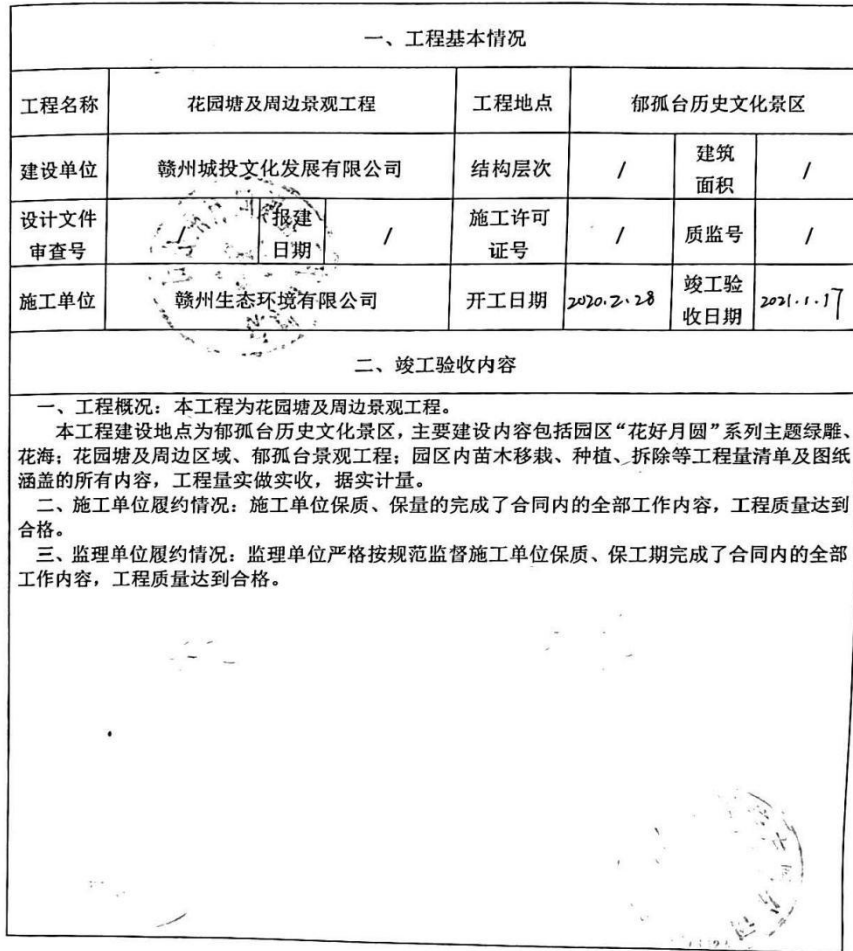 一、工程基本情况
工程名称 花园塘及周边景观工程 工程地点 郁孤台历史文化景区
建设单位 赣州城投文化发展有限公司 结构层次 / 建筑面积 /
设计文件审查号 / 报建日期 / 施工许可证号 / 质监号 /
施工单位 赣州生态环境有限公司 开工日期 2020.2.28 竣工验收日期 2021.1.17
二、竣工验收内容
一、工程概况：本工程为花园塘及周边景观工程。
本工程建设地点为郁孤台历史文化景区，主要建设内容包括园区“花好月圆”系列主题绿雕、
花海；花园塘及周边区域、郁孤台景观工程；园区内苗木移栽、种植、拆除等工程量清单及图纸
涵盖的所有内容，工程量实做实收，据实计量。
二、施工单位履约情况：施工单位保质、保量的完成了合同内的全部工作内容，工程质量达到
合格。
三、监理单位履约情况：监理单位严格按规范监督施工单位保质、保工期完成了合同内的全部
工作内容，工程质量达到合格。